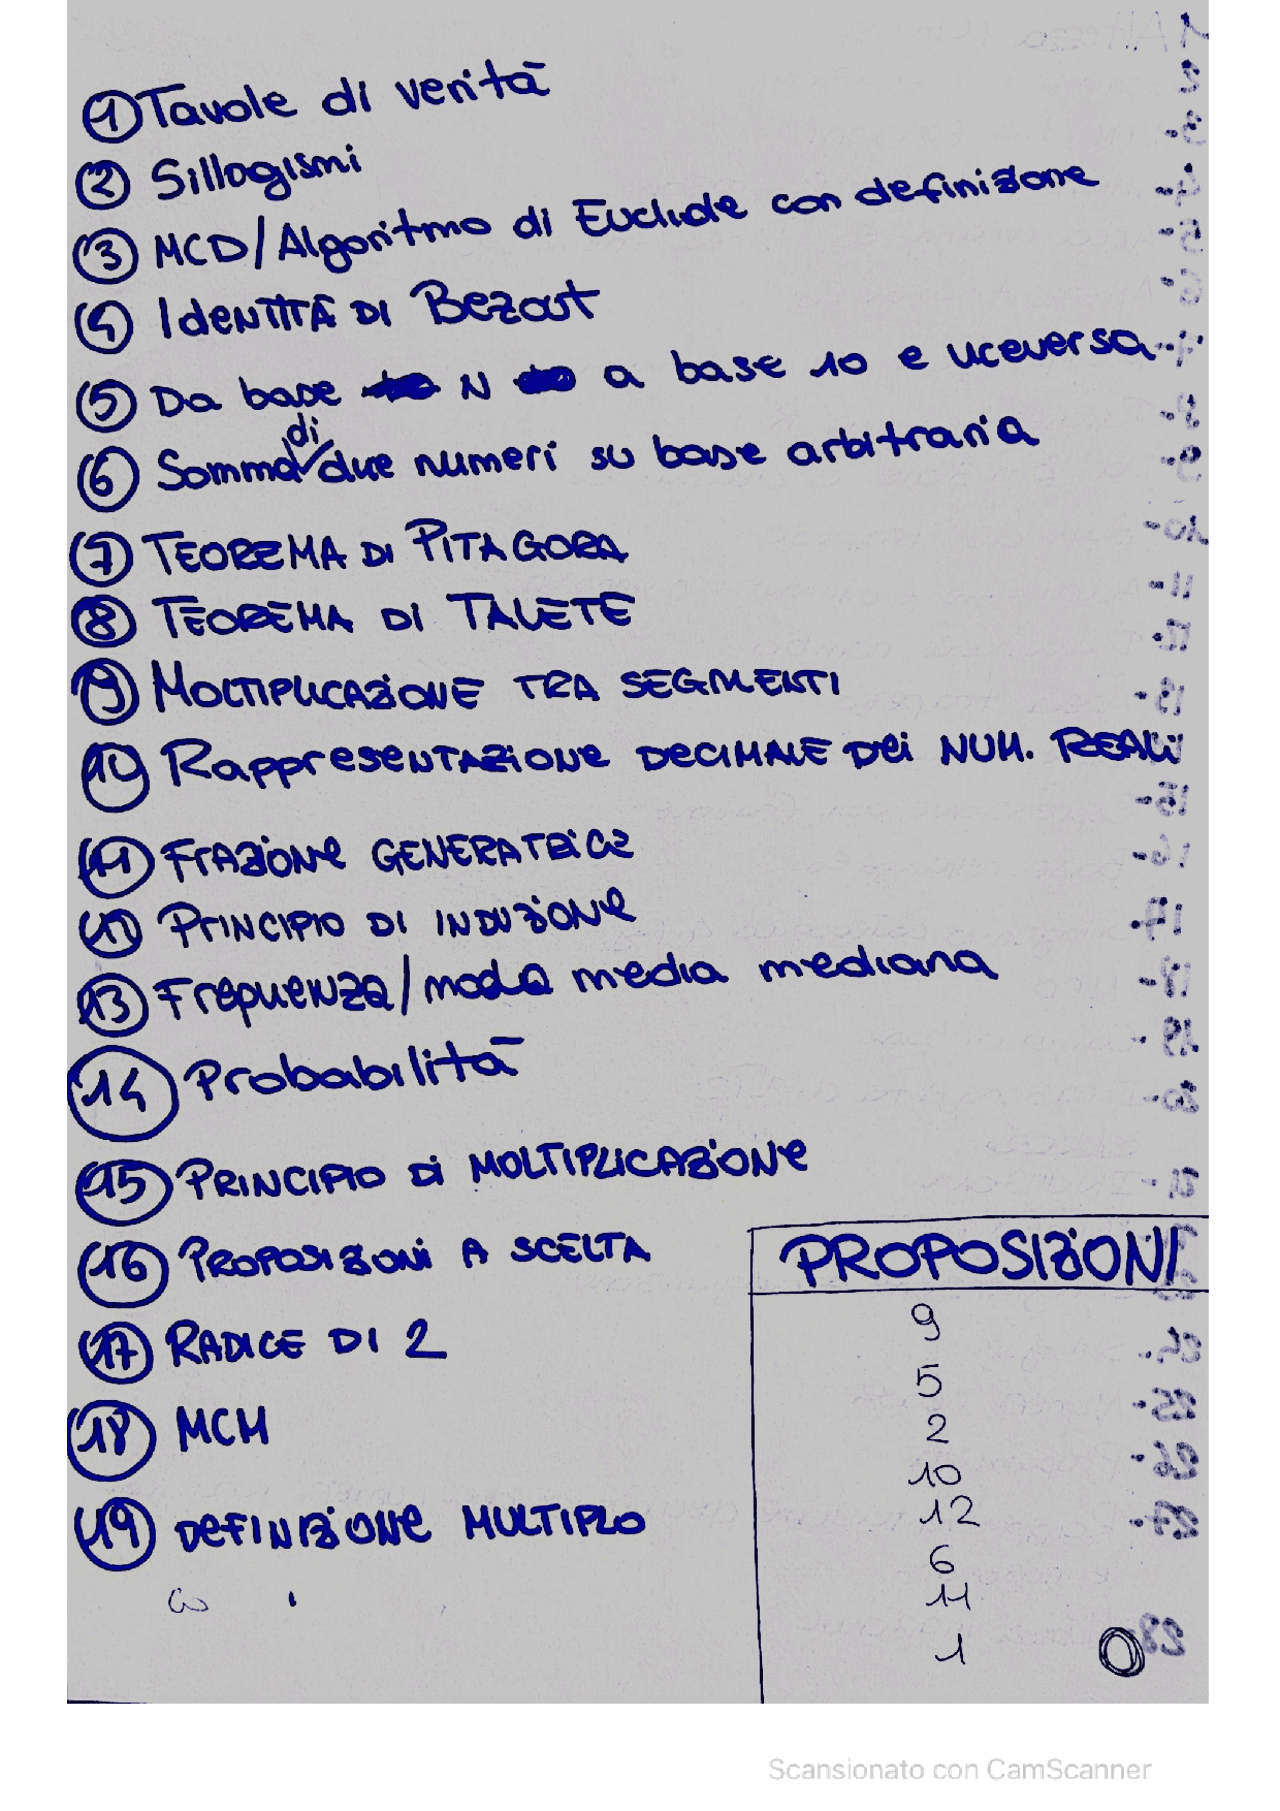 ① Tavole di verità
② Sillogismi
③ MCD/Algoritmo di Euclide con definizione
④ Identità di Bezout
⑤ Da base N a base 10 e viceversa
⑥ Somma di due numeri su base arbitraria
⑦ TEOREMA DI PITAGORA
⑧ TEOREMA DI TALETE
⑨ MOLTIPLICAZIONE TRA SEGMENTI
⑩ RappresentAZIONE DECIMALE Dei NUM. REALi
⑪ FrAZIONe GENERATRiCe
⑪ PriNCIPIO DI INDUZIONe
⑬ Frequenza/moda media mediana
⑭ Probabilità
⑮ PRINCIPIO Di MOLTIPLICAZIONe
⑯ PROPOSIZIONi A SCELTA
⑰ RADICE DI 2
⑱ MCM
⑲ DeFINIZIONe MULTIPLO
PROPOSIZIONI
9
5
2
10
12
6
11
1
Scansionato con CamScanner